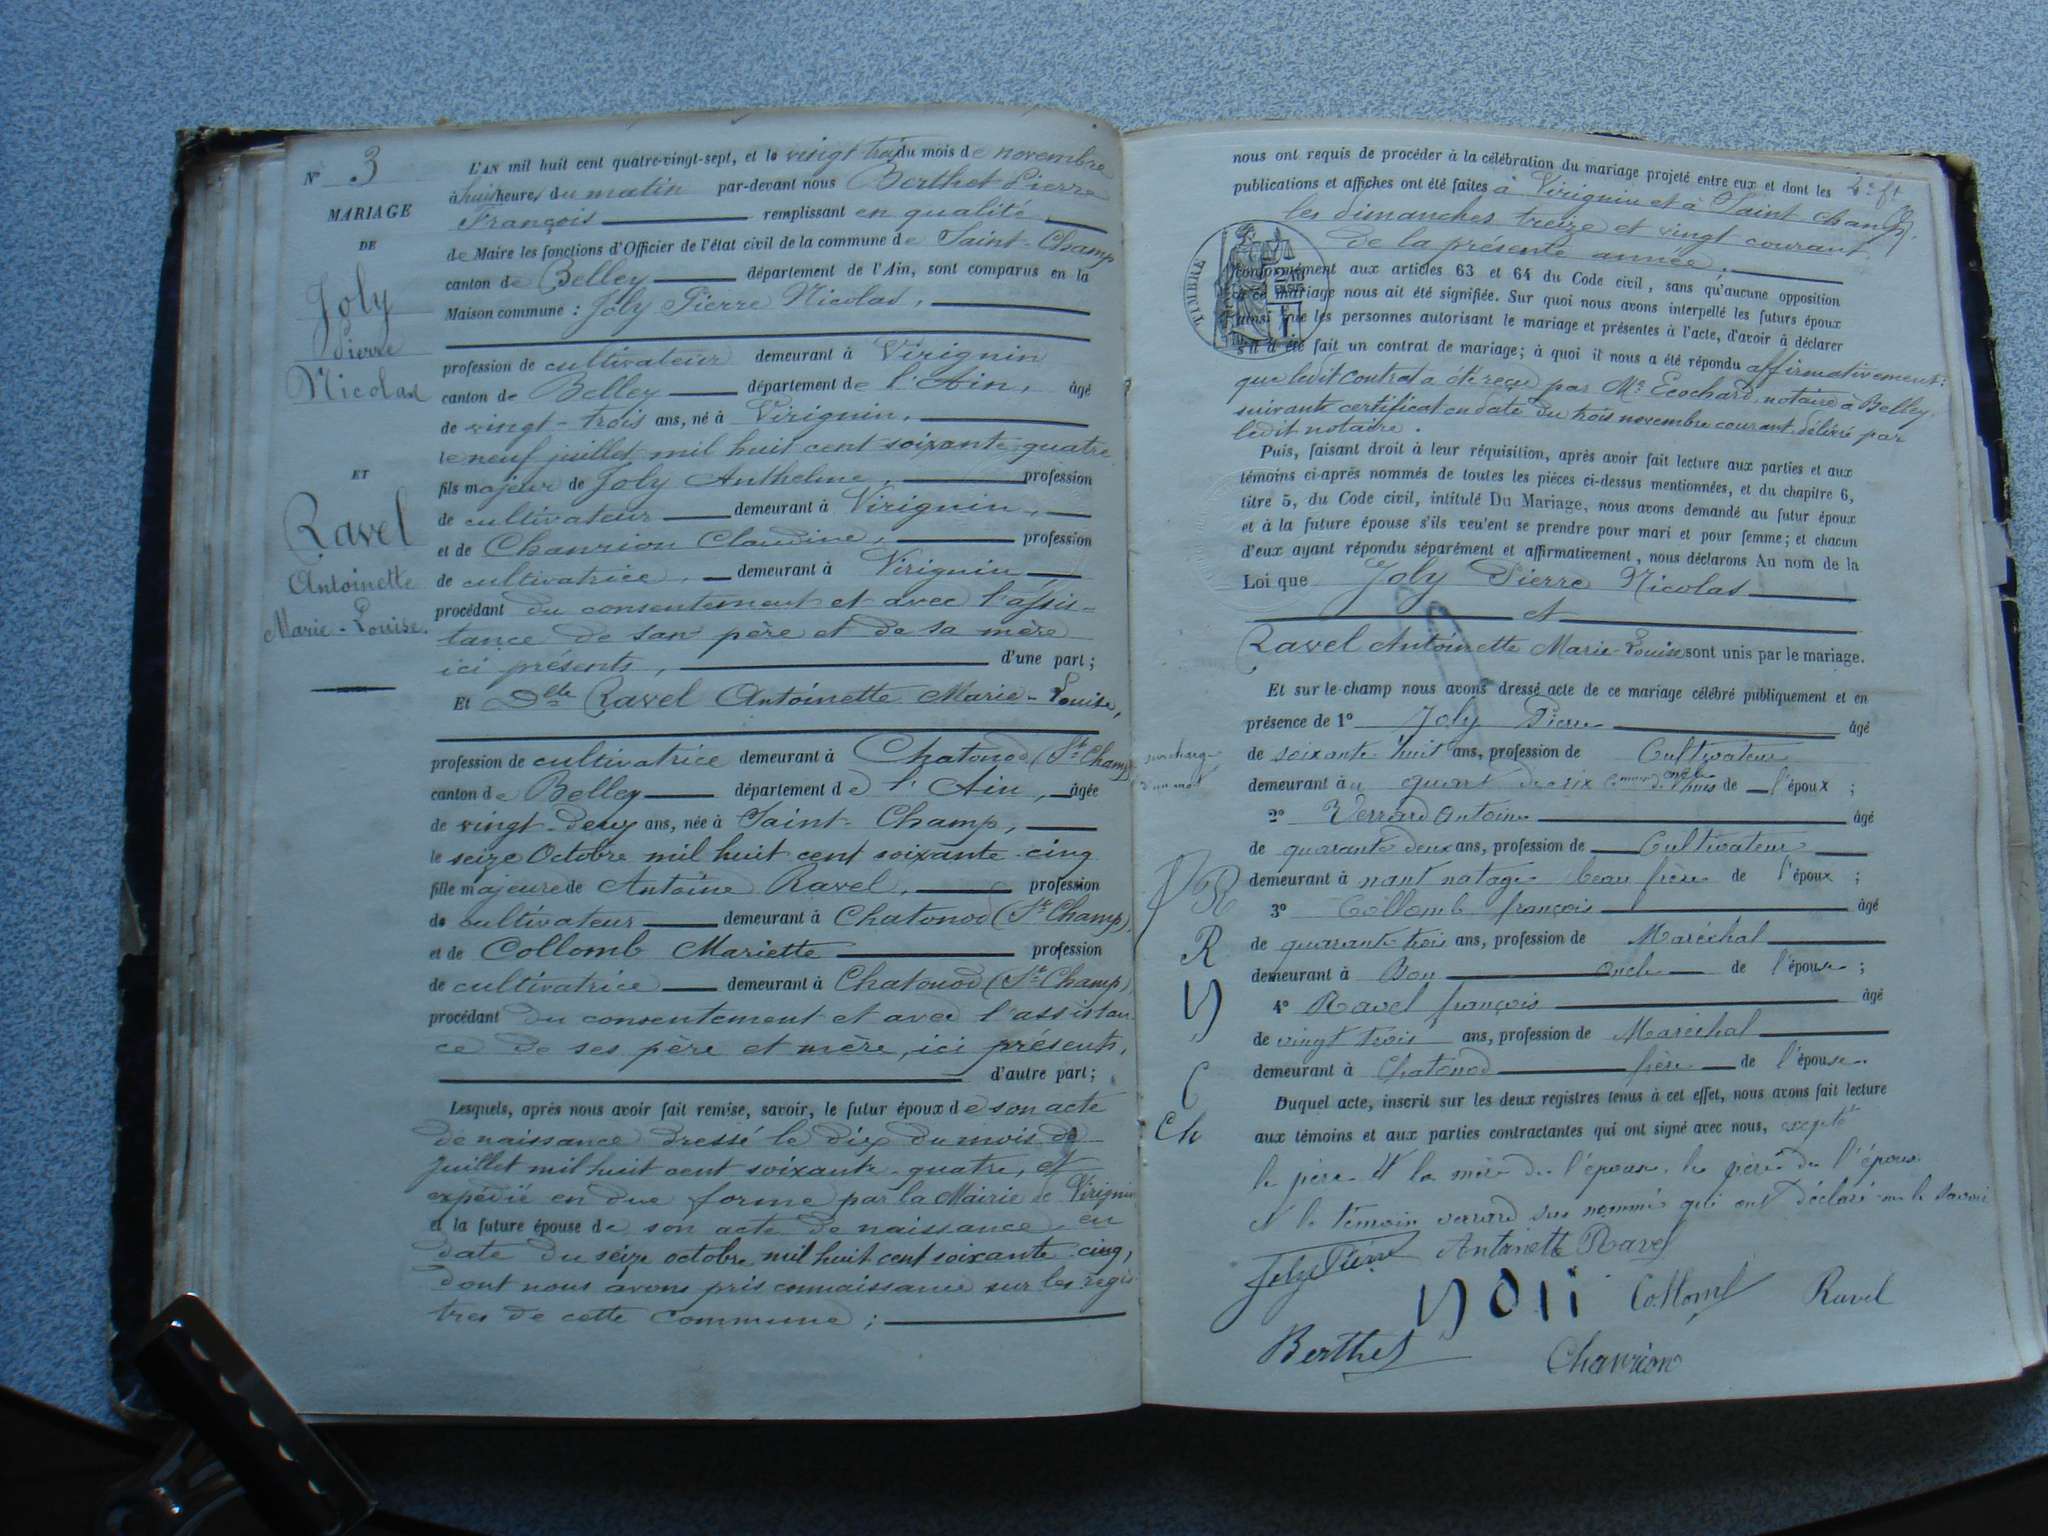 N° 3
MARIAGE
DE
Joly
Pierre
Nicolas
ET
Ravel
Antoinette
Marie-Louise.
L'AN mil huit cent quatre-vingt-sept, et le vingt trois du mois de novembre
à huit heures du matin par-devant nous Berthet Pierre
François remplissant en qualité
de Maire les fonctions d'Officier de l'état civil de la commune de Saint-Champ
canton de Belley département de l'Ain, sont comparus en la
Maison commune : Joly Pierre Nicolas,
profession de cultivateur demeurant à Virignin
canton de Belley département de l'Ain, âgé
de vingt-trois ans, né à Virignin,
le neuf juillet mil huit cent soixante quatre
fils majeur de Joly Anthelme, profession
de cultivateur demeurant à Virignin,
et de Chanrion Claudine, profession
de cultivatrice, demeurant à Virignin
procédant du consentement et avec l'assis-
tance de son père et de sa mère
ici présents, d'une part ;
Et Dlle Ravel Antoinette Marie-Louise,
profession de cultivatrice demeurant à Chatonod (St Champ)
canton de Belley département de l'Ain, âgée
de vingt-deux ans, née à Saint-Champ,
le seize Octobre mil huit cent soixante-cinq
fille majeure de Antoine Ravel, profession
de cultivateur demeurant à Chatonod (St Champ),
et de Collomb Mariette profession
de cultivatrice demeurant à Chatonod (St Champ),
procédant du consentement et avec l'assistan
ce de ses père et mère, ici présents,
d'autre part ;
Lesquels, après nous avoir fait remise, savoir, le futur époux de son acte
de naissance dressé le dix du mois de
Juillet mil huit cent soixante-quatre, et
expédié en due forme par la Mairie de Virignin
et la future épouse de son acte de naissance, en
date du seize octobre mil huit cent soixante-cinq,
dont nous avons pris connaissance sur les regis
tres de cette commune ;
nous ont requis de procéder à la célébration du mariage projeté entre eux et dont les
publications et affiches ont été faites à Virignin et à Saint Champ
les dimanches treize et vingt courant
de la présente année.
TIMBRE
conformément aux articles 63 et 64 du Code civil, sans qu'aucune opposition
à ce mariage nous ait été signifiée. Sur quoi nous avons interpellé les futurs époux
ainsi que les personnes autorisant le mariage et présentes à l'acte, d'avoir à déclarer
s'il a été fait un contrat de mariage ; à quoi il nous a été répondu affirmativement :
que ledit contrat a été reçu par Me Ecochard, notaire à Belley,
suivant certificat en date du trois novembre courant, délivré par
ledit notaire.
Puis, faisant droit à leur réquisition, après avoir fait lecture aux parties et aux
témoins ci-après nommés de toutes les pièces ci-dessus mentionnées, et du chapitre 6,
titre 5, du Code civil, intitulé Du Mariage, nous avons demandé au futur époux
et à la future épouse s'ils veulent se prendre pour mari et pour femme ; et chacun
d'eux ayant répondu séparément et affirmativement, nous déclarons Au nom de la
Loi que Joly Pierre Nicolas
et
Ravel Antoinette Marie-Louise sont unis par le mariage.
Et sur-le-champ nous avons dressé acte de ce mariage célébré publiquement et en
présence de 1° Joly Pierre âgé
de soixante huit ans, profession de Cultivateur
surcharge
d'un mot
demeurant à oncle de l'époux ;
2° Verrard Antoine âgé
de quarante deux ans, profession de Cultivateur
demeurant à nant beau frère de l'époux ;
3° Collomb françois âgé
de quarante trois ans, profession de Maréchal
demeurant à Bon oncle de l'épouse ;
4° Ravel françois âgé
de vingt trois ans, profession de Maréchal
demeurant à Chatonod frère de l'épouse.
R
R
C
Ch
Duquel acte, inscrit sur les deux registres tenus à cet effet, nous avons fait lecture
aux témoins et aux parties contractantes qui ont signé avec nous, excepté
le père et la mère de l'épouse, le père de l'époux
et le témoin verrard sus nommés qui ont déclaré ne le savoir
Joly Pierre Antoinette Ravel
Joli Collomb Ravel
Berthet Chanrion